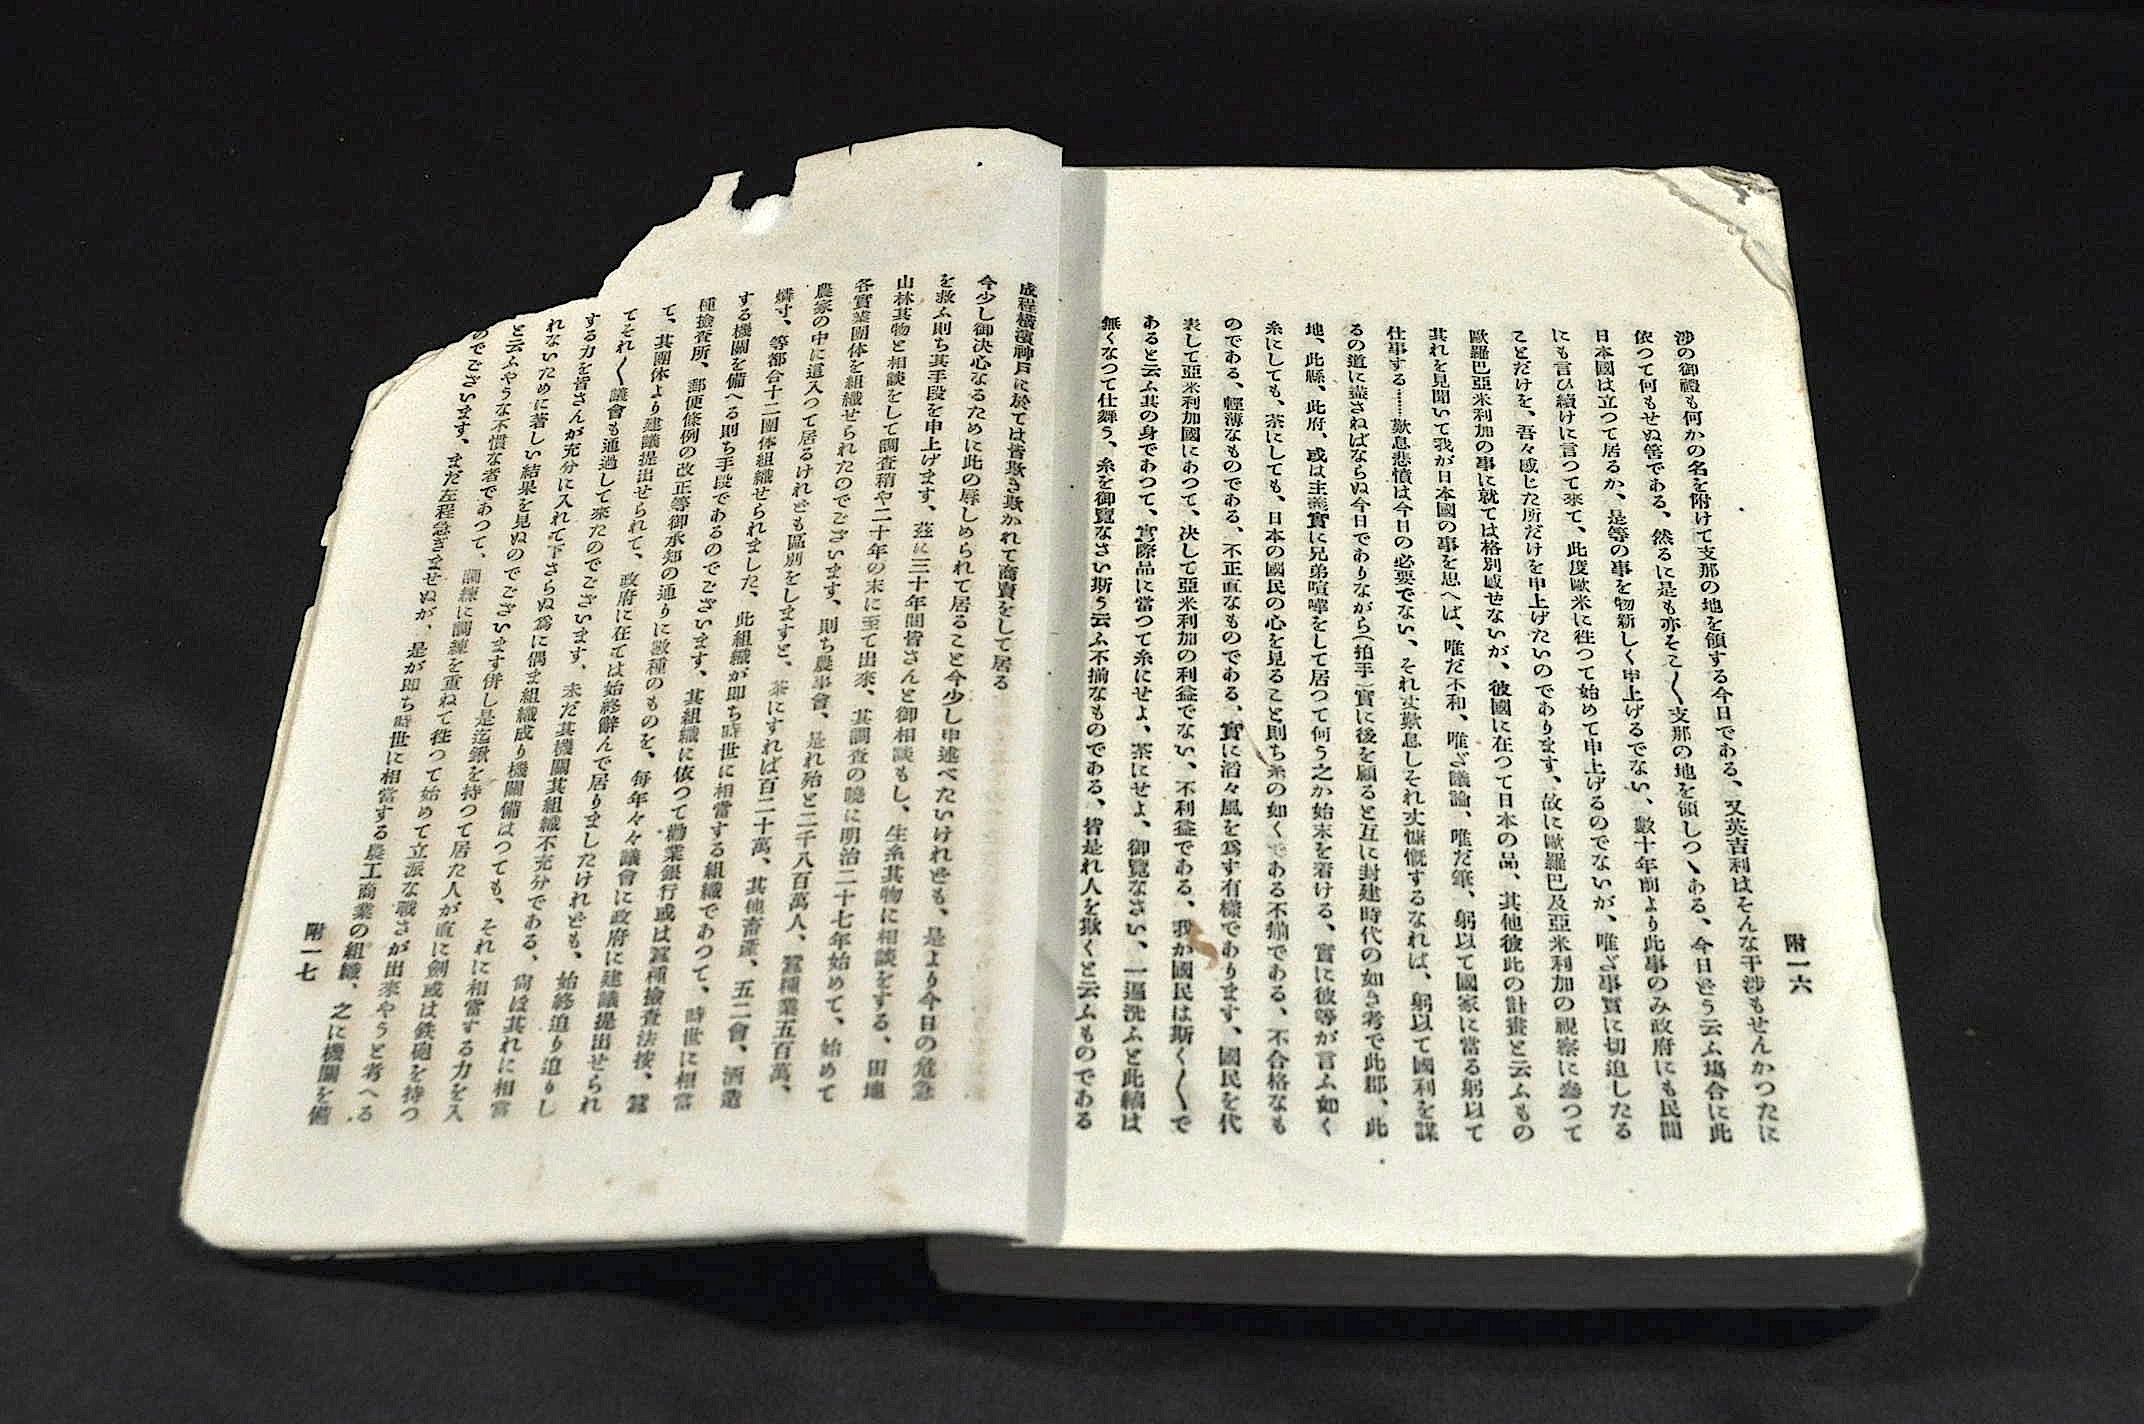 附一六
涉の御禮も何かの名を附けて支那の地を領する今日である、又英吉利はそんな干涉もせんかつたに
依つて何もせぬ筈である、然るに是も亦そこ〱支那の地を領しつゝある、今日どう云ふ塲合に此
日本國は立つて居るか、是等の事を物新しく申上げるでない、數十年前より此事のみ政府にも民間
にも言ひ續けに言つて來て、此度歐米に徃つて始めて申上げるのでないが、唯ざ事實に切迫したる
ことだけを、吾々感じた所だけを申上げたいのであります、故に歐羅巴及亞米利加の視察に參つて
歐羅巴亞米利加の事に就ては格別感せないが、彼國に在つて日本の品、其他彼此の計畫と云ふもの
其れを見聞いて我が日本國の事を思へば、唯だ不和、唯ざ議論、唯だ筆、躬以て國家に當る躬以て
仕事する……歎息悲憤は今日の必要でない、それ丈歎息しそれ丈慷慨するなれば、躬以て國利を謀
るの道に盡さねばならぬ今日でありながら(拍手)實に後を顧ると互に封建時代の如き考で此郡、此
地、此縣、此府、或は主義實に兄弟喧嘩をして居つて何う之か始末を着ける、實に彼等が言ふ如く
糸にしても、茶にしても、日本の國民の心を見ること則ち糸の如くである不揃である、不合格なも
のである、輕薄なものである、不正直なものである、實に滔々風を爲す有樣であります、國民を代
表して亞米利加國にあつて、决して亞米利加の利益でない、不利益である、我か國民は斯く〱で
あると云ふ其の身であつて、實際品に當つて糸にせよ、茶にせよ、御覽なさい、一遍洗ふと此縞は
無くなつて仕舞う、糸を御覽なさい斯う云ふ不揃なものである、皆是れ人を欺くと云ふものである
成程橫濱神戶に於ては皆欺き欺かれて商賣をして居る
今少し御决心なるために此の辱しめられて居ること今少し申述べたいけれども、是より今日の危急
を救ふ則ち其手段を申上げます、茲に三十年間皆さんと御相談もし、生糸其物に相談をする、田地
山林其物と相談をして調査稍や二十年の末に至て出來、其調査の曉に明治二十七年始めて、始めて
各實業團体を組織せられたのでございます、則ち農事會、是れ殆と二千八百萬人、蠶種業五百萬、
農家の中に這入つて居るけれども區別をしますと、茶にすれば百二十萬、其他畜產、五二會、酒造
燐寸、等都合十二團体組織せられました、此組織が卽ち時世に相當する組織であつて、時世に相當
する機關を備へる則ち手段であるのでございます、其組織に依つて勸業銀行或は蠶種檢查法按、蠶
種檢查所、郵便條例の改正等御承知の通りに數種のものを、每年々々議會に政府に建議提出せられ
て、其團体より建議提出せられて、政府に在ては始終辭んで居りましたけれども、始終迫り迫りし
てそれ〱議會も通過して來たのでございます、未だ其機關其組織不充分である、尙ほ其れに相當
する力を皆さんが充分に入れて下さらぬ爲に偶ま組織成り機關備はつても、それに相當する力を入
れないために著しい結果を見ぬのでございます併し是迄鍬を持つて居た人が直に劍或は鉄砲を持つ
と云ふやうな不慣な者であつて、調練に調練を重ねて徃つて始めて立派な戰さが出來やうと考へる
のでございます、まだ左程急ぎませぬが、是が卽ち時世に相當する農工商業の組織、之に機關を備
附一七